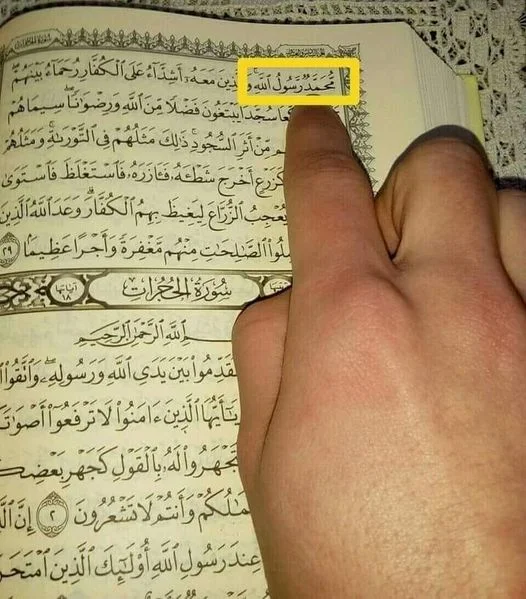 مُّحَمَّدٌ رَّسُولُ ٱللَّهِۚ وَٱلَّذِينَ مَعَهُۥٓ أَشِدَّآءُ عَلَى ٱلْكُفَّارِ رُحَمَآءُ بَيْنَهُمْ
سُجَّدًا يَبْتَغُونَ فَضْلًا مِّنَ ٱللَّهِ وَرِضْوَٰنًاۖ سِيمَاهُمْ
مِّنْ أَثَرِ ٱلسُّجُودِۚ ذَٰلِكَ مَثَلُهُمْ فِى ٱلتَّوْرَىٰةِۚ وَمَثَلُهُمْ
كَزَرْعٍ أَخْرَجَ شَطْـَٔهُۥ فَـَٔازَرَهُۥ فَٱسْتَغْلَظَ فَٱسْتَوَىٰ
يُعْجِبُ ٱلزُّرَّاعَ لِيَغِيظَ بِهِمُ ٱلْكُفَّارَۗ وَعَدَ ٱللَّهُ ٱلَّذِينَ
ٱلصَّٰلِحَٰتِ مِنْهُم مَّغْفِرَةً وَأَجْرًا عَظِيمًۢا ٢٩
سُورَةُ الحُجُرَاتِ آيَاتُهَا ١٨
ٱللَّهِ ٱلرَّحْمَٰنِ ٱلرَّحِيمِ
تُقَدِّمُوا۟ بَيْنَ يَدَىِ ٱللَّهِ وَرَسُولِهِۦۖ وَٱتَّقُوا۟
يَٰٓأَيُّهَا ٱلَّذِينَ ءَامَنُوا۟ لَا تَرْفَعُوٓا۟ أَصْوَٰتَ
تَجْهَرُوا۟ لَهُۥ بِٱلْقَوْلِ كَجَهْرِ بَعْضِكُ
أَعْمَٰلُكُمْ وَأَنتُمْ لَا تَشْعُرُونَ ٢ إِنَّ ٱلَّ
عِندَ رَسُولِ ٱللَّهِ أُو۟لَٰٓئِكَ ٱلَّذِينَ ٱمْتَحَنَ